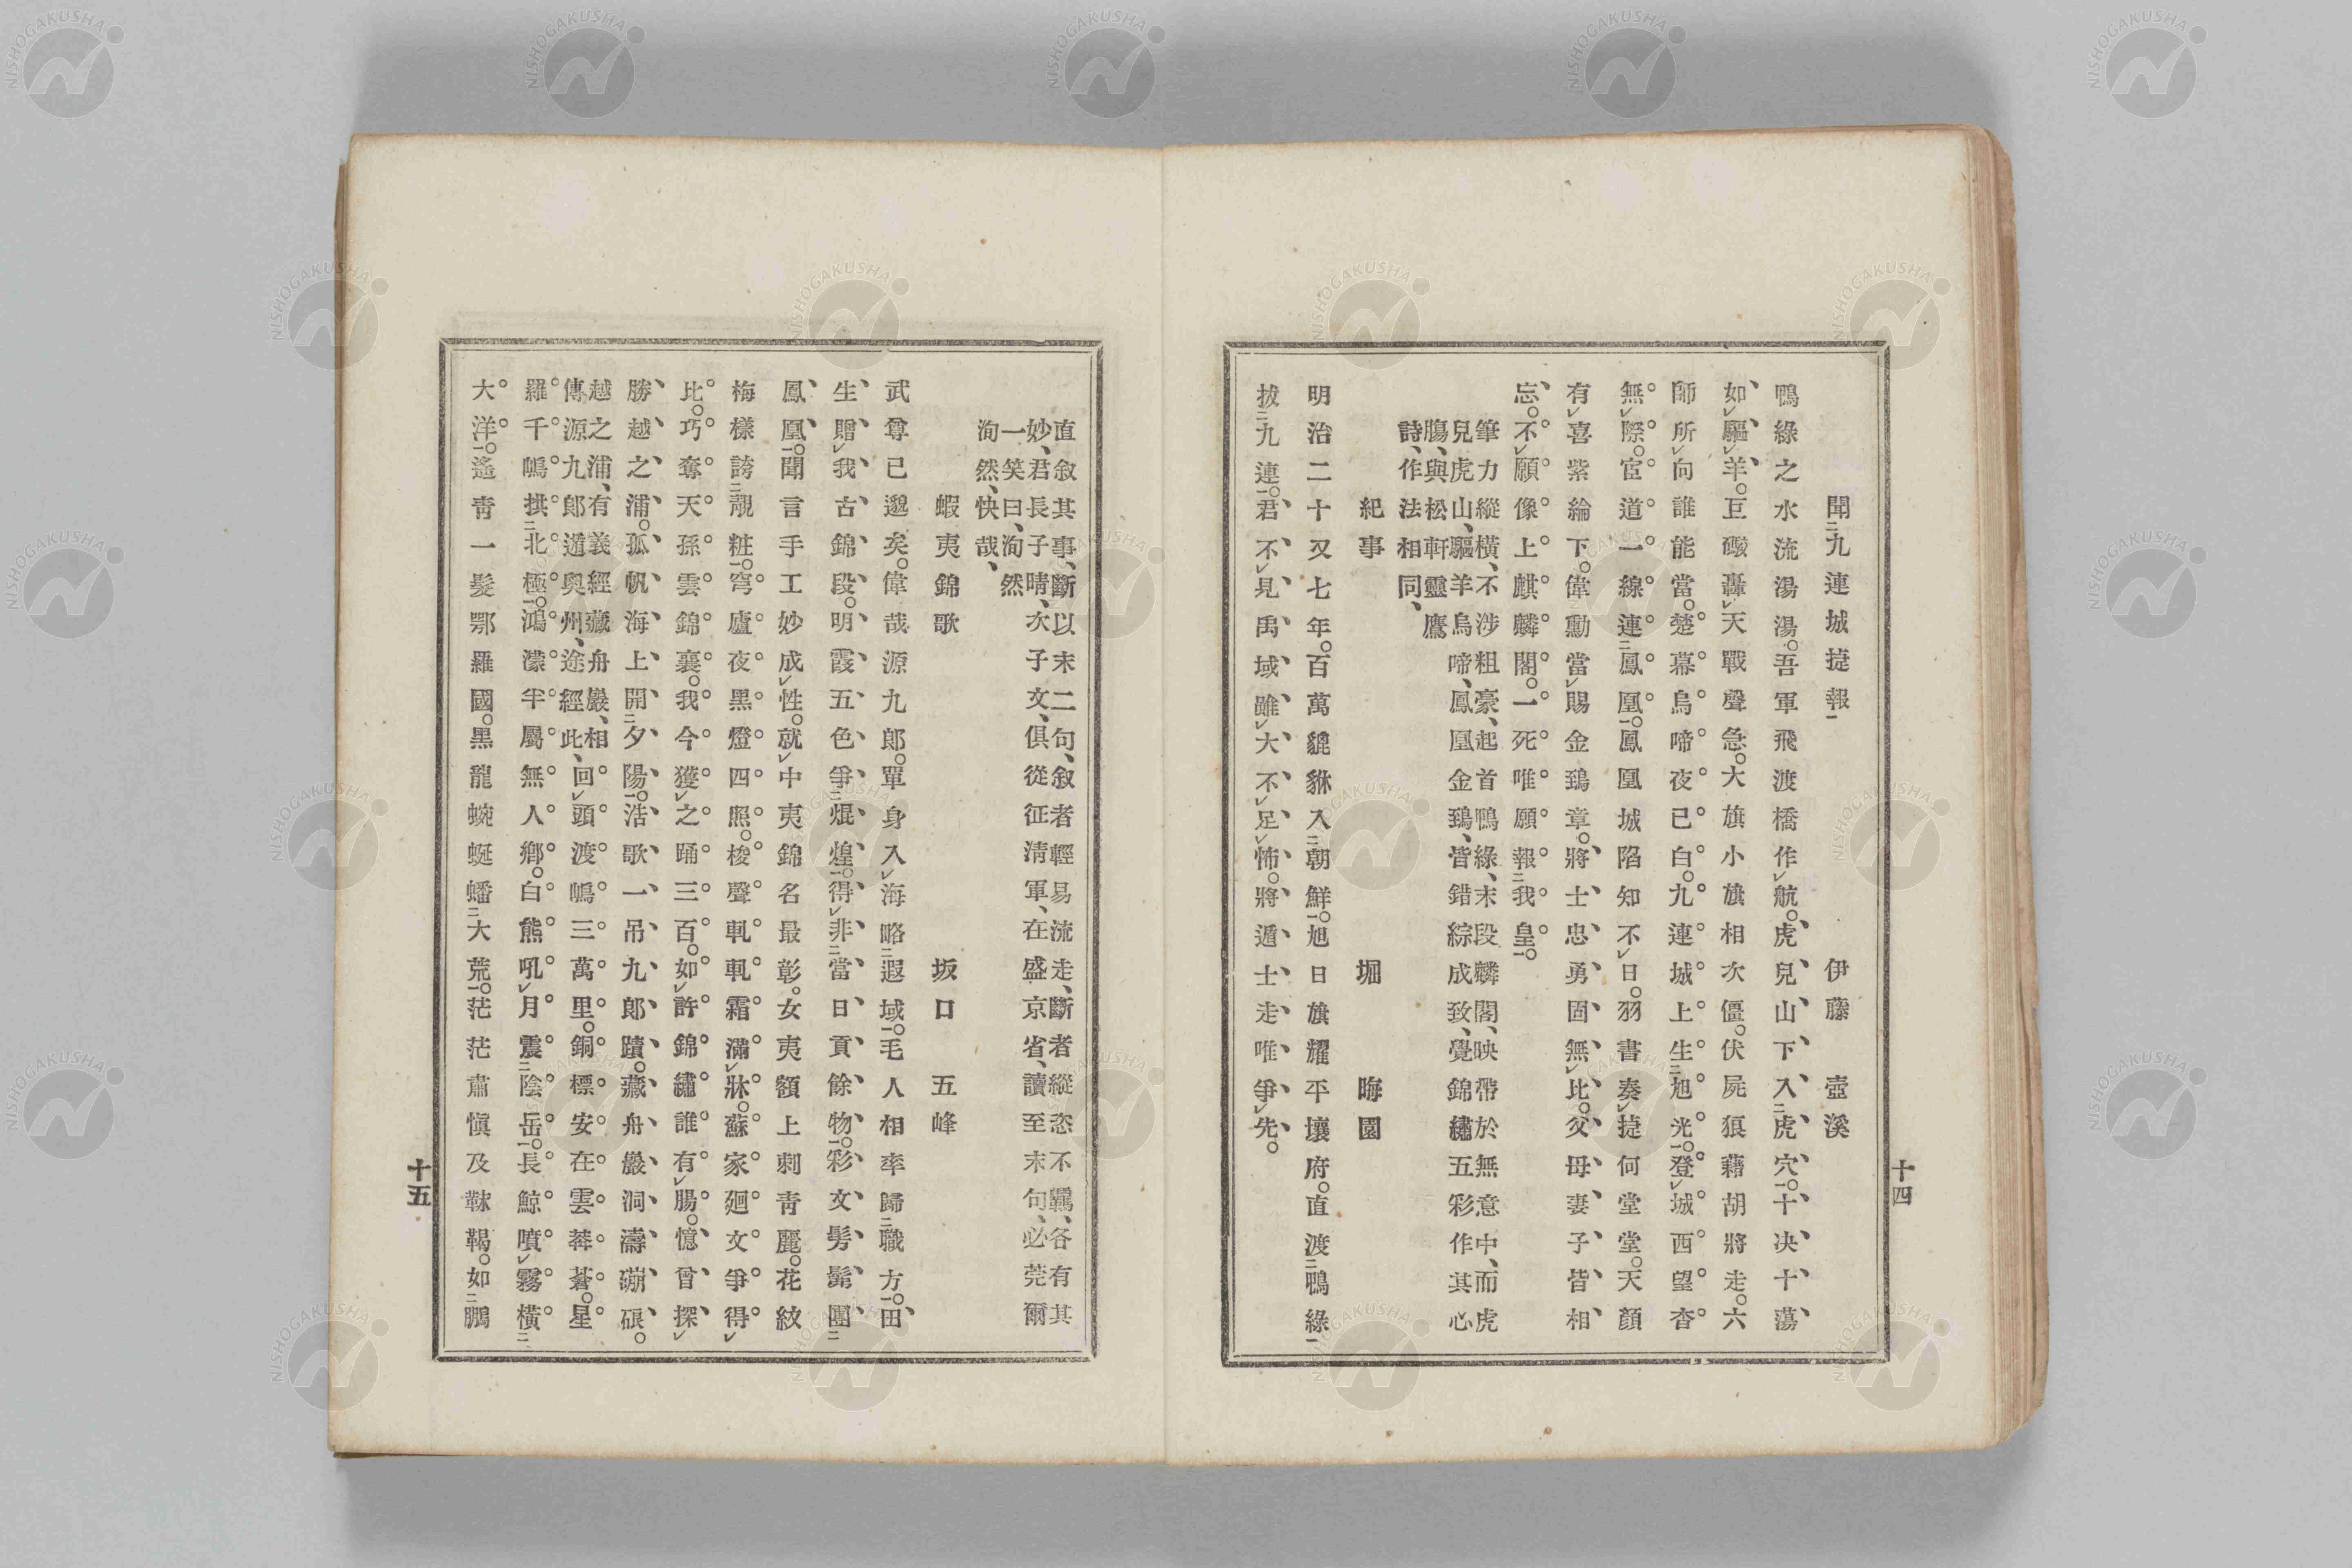 十四
聞九連城捷報　伊藤壺溪
鴨綠之水流湯湯。吾軍飛渡橋作航。虎兒山下入虎穴。十決十蕩
如驅羊。巨礮轟天戰聲急。大旗小旗相次僵。伏屍狼藉胡將走。六
師所向誰能當。楚幕烏啼夜已白。九連城上生旭光。登城西望杳
無際。官道一線連鳳凰。鳳凰城陷知不日。羽書奏捷何堂堂。天顏
有喜紫綸下。偉勳當賜金鵄章。將士忠勇固無比。父母妻子皆相
忘。不願像上麒麟閣。一死唯願報我皇。
筆力縱橫、不涉粗豪、起首鴨綠、末段麟閣、映帶於無意中、而虎
兒虎山、驅羊烏啼、鳳凰金鵄、皆錯綜成致、覺錦繡五彩作其心
膓、與松軒靈鷹
詩、作法相同、
紀事　堀晦園
明治二十又七年。百萬貔貅入朝鮮。旭日旗耀平壤府。直渡鴨綠
拔九連。君不見禹域雖大不足怖。將遁士走唯爭先。
直敘其事、斷以末二句、敘者輕易流走、斷者縱恣不羈、各有其
妙、君長子晴、次子文、俱從征淸軍、在盛京省、讀至末句、必莞爾
一笑曰、洵然
洵然、快哉、
蝦夷錦歌　坂口五峰
武尊已邈矣。偉哉源九郎。單身入海略遐域。毛人相率歸職方。田
生贈我古錦段。明霞五色爭焜煌。得非當日貢餘物。彩文髣髴團
鳳凰。聞言手工妙成性。就中夷錦名最彰。女夷額上刺靑麗。花紋
梅樣誇靚粧。穹廬夜黑燈四照。梭聲軋軋霜滿牀。蘇家廻文爭得
比。巧奪天孫雲錦襄。我今獲之踊三百。如許錦繡誰有腸。憶曾探
勝越之浦。孤帆海上開夕陽。浩歌一吊九郎蹟。藏舟巖洞濤硼硠。
越之浦、有義經藏舟巖、相
傳源九郎遁奧州、途經此、
回頭渡嶋三萬里。銅標安在雲莽蒼。星
羅千嶋拱北極。鴻濛半屬無人鄉。白熊吼月震陰岳。長鯨噴霧橫
大洋。遙靑一髮鄂羅國。黑龍蜿蜒蟠大荒。茫茫肅愼及靺鞨。如鵬
十五
NISHOGAKUSHA